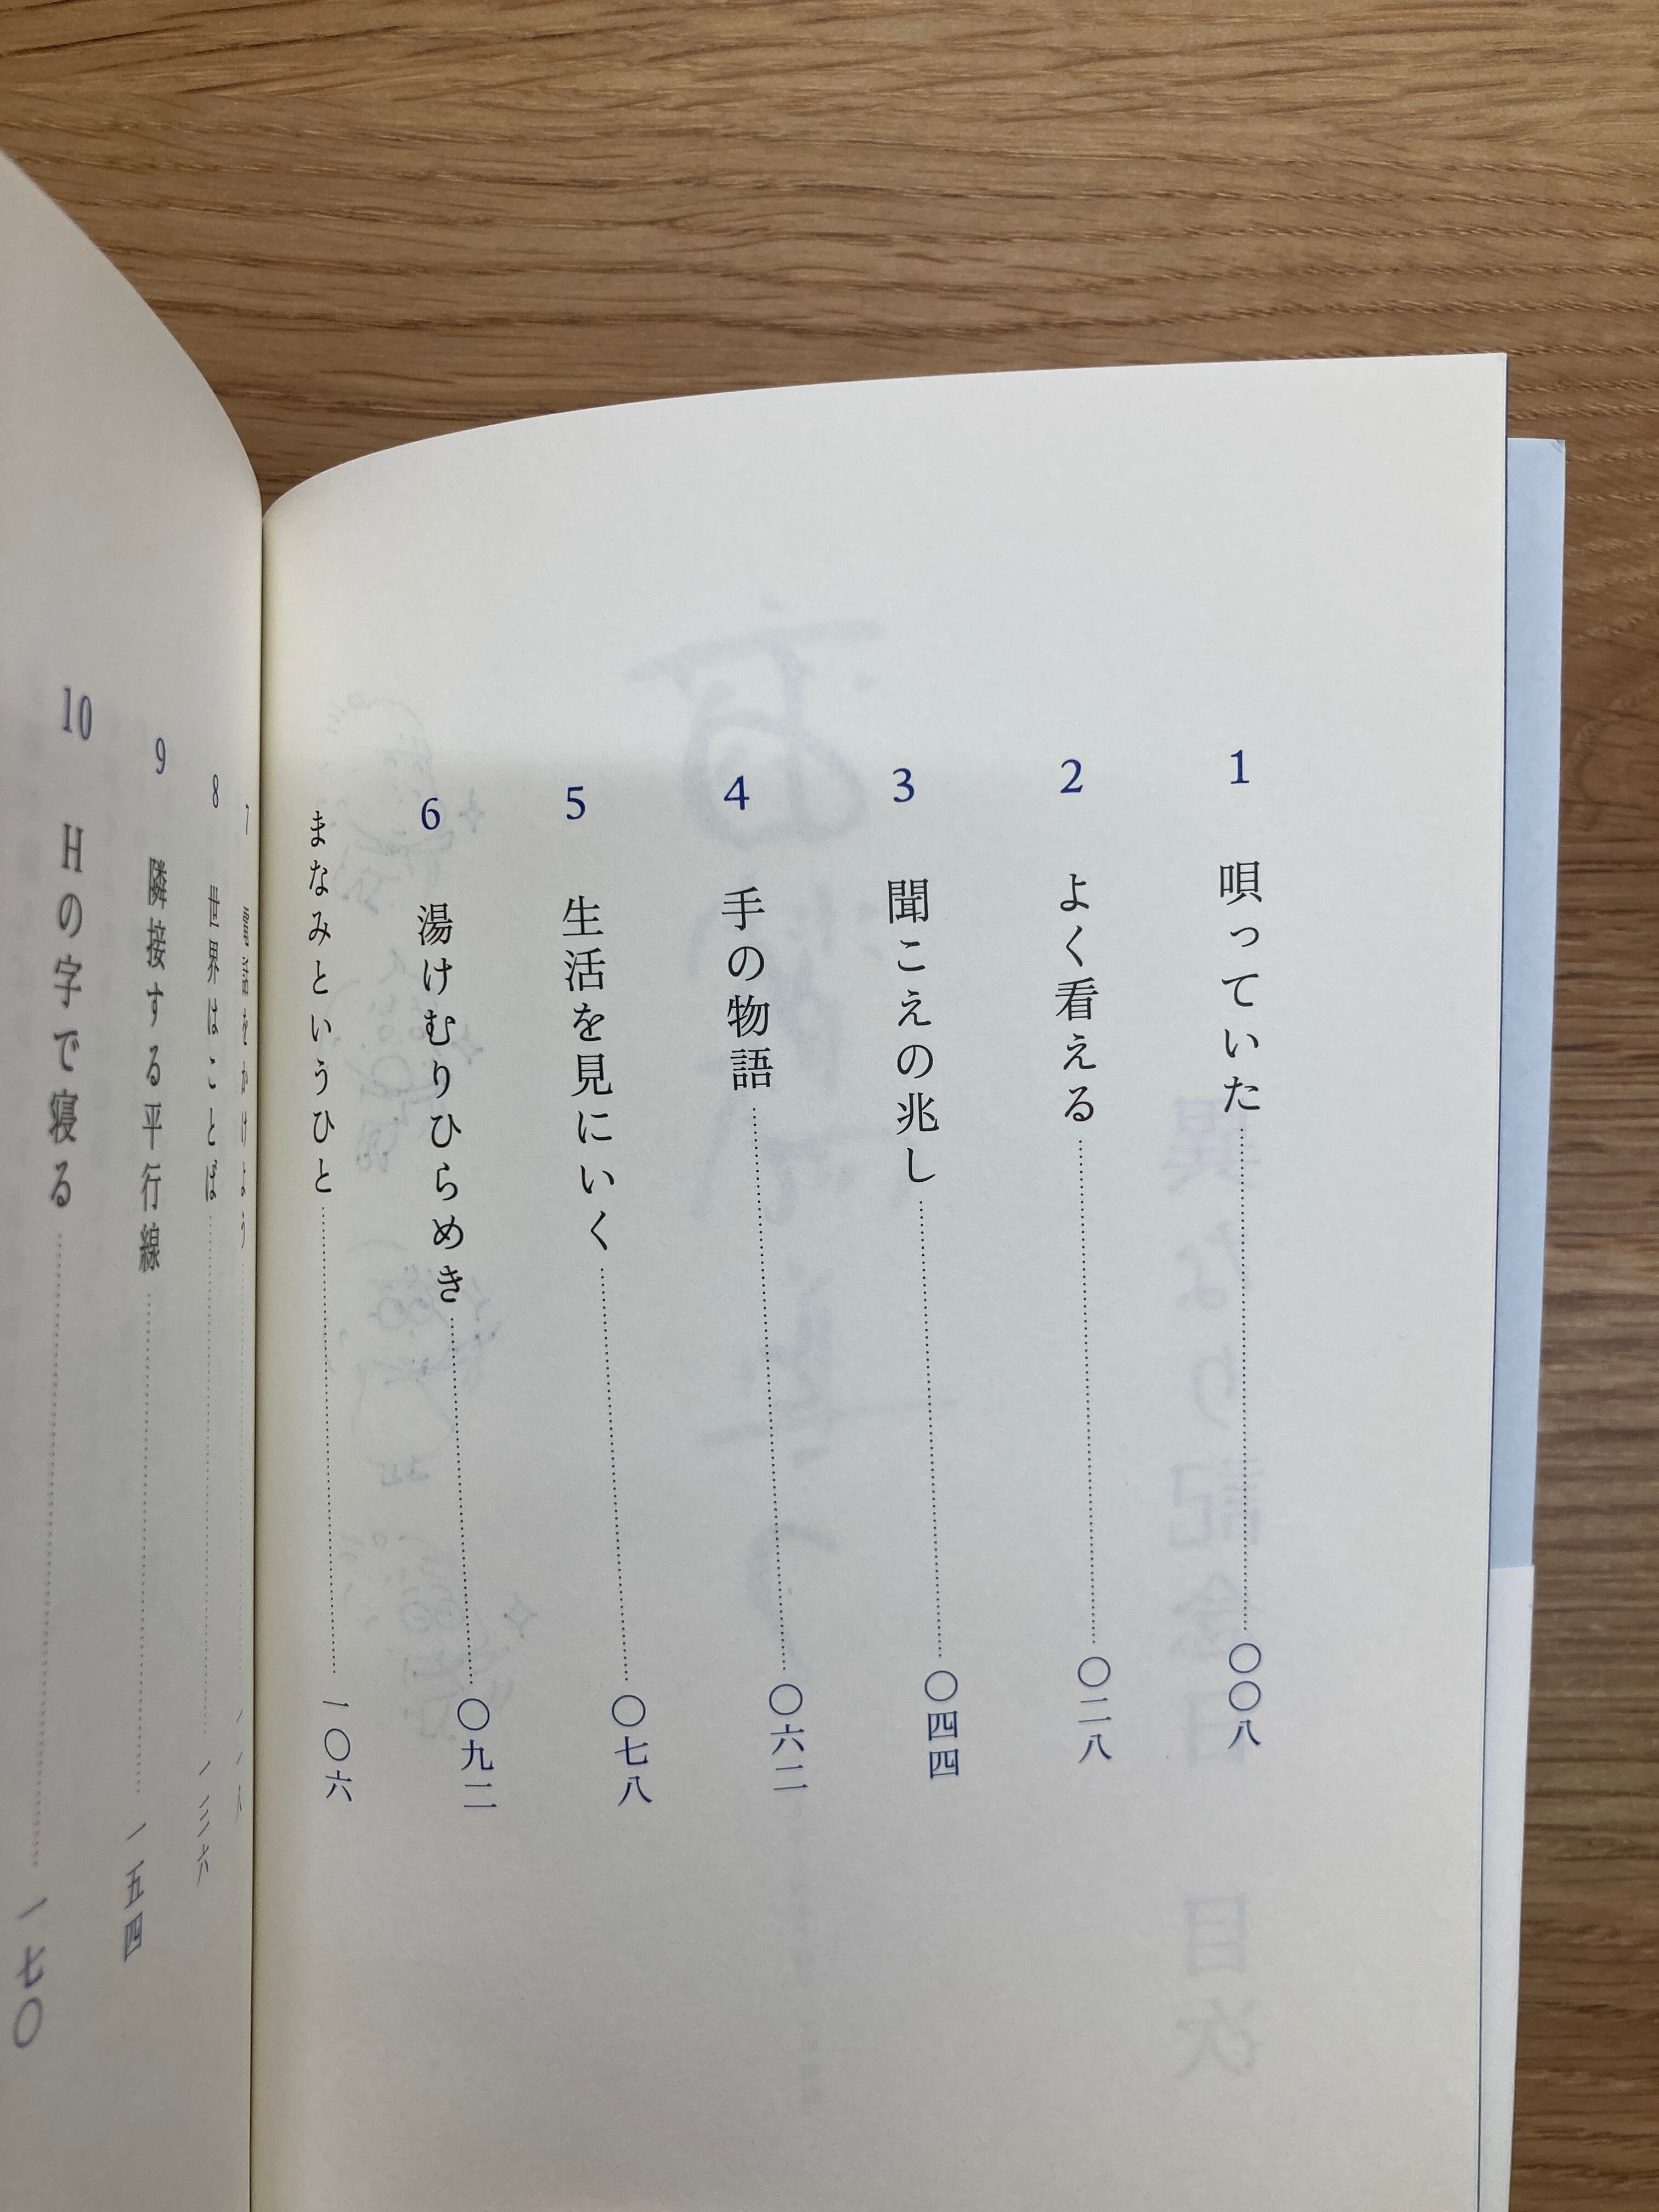 1 唄っていた 〇〇八
2 よく看える 〇二八
3 聞こえの兆し 〇四四
4 手の物語 〇六二
5 生活を見にいく 〇七八
6 湯けむりひらめき 〇九二
まなみというひと 一〇六
7 電話をかけよう
8 世界はことば 一三六
9 隣接する平行線 一五四
10 Hの字で寝る 一七〇
異なり記念日 目次